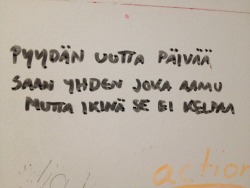 PYYDÄN UUTTA PÄIVÄÄ
SAAN YHDEN JOKA AAMU
MUTTA IKINÄ SE EI KELPAA
action